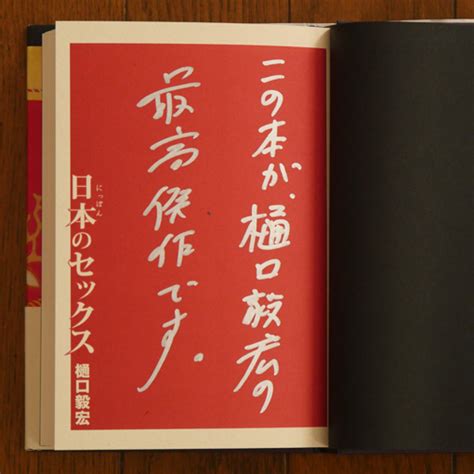 この本が、樋口毅宏の
最高傑作です。
日本のセックス
にっぽん
樋口毅宏